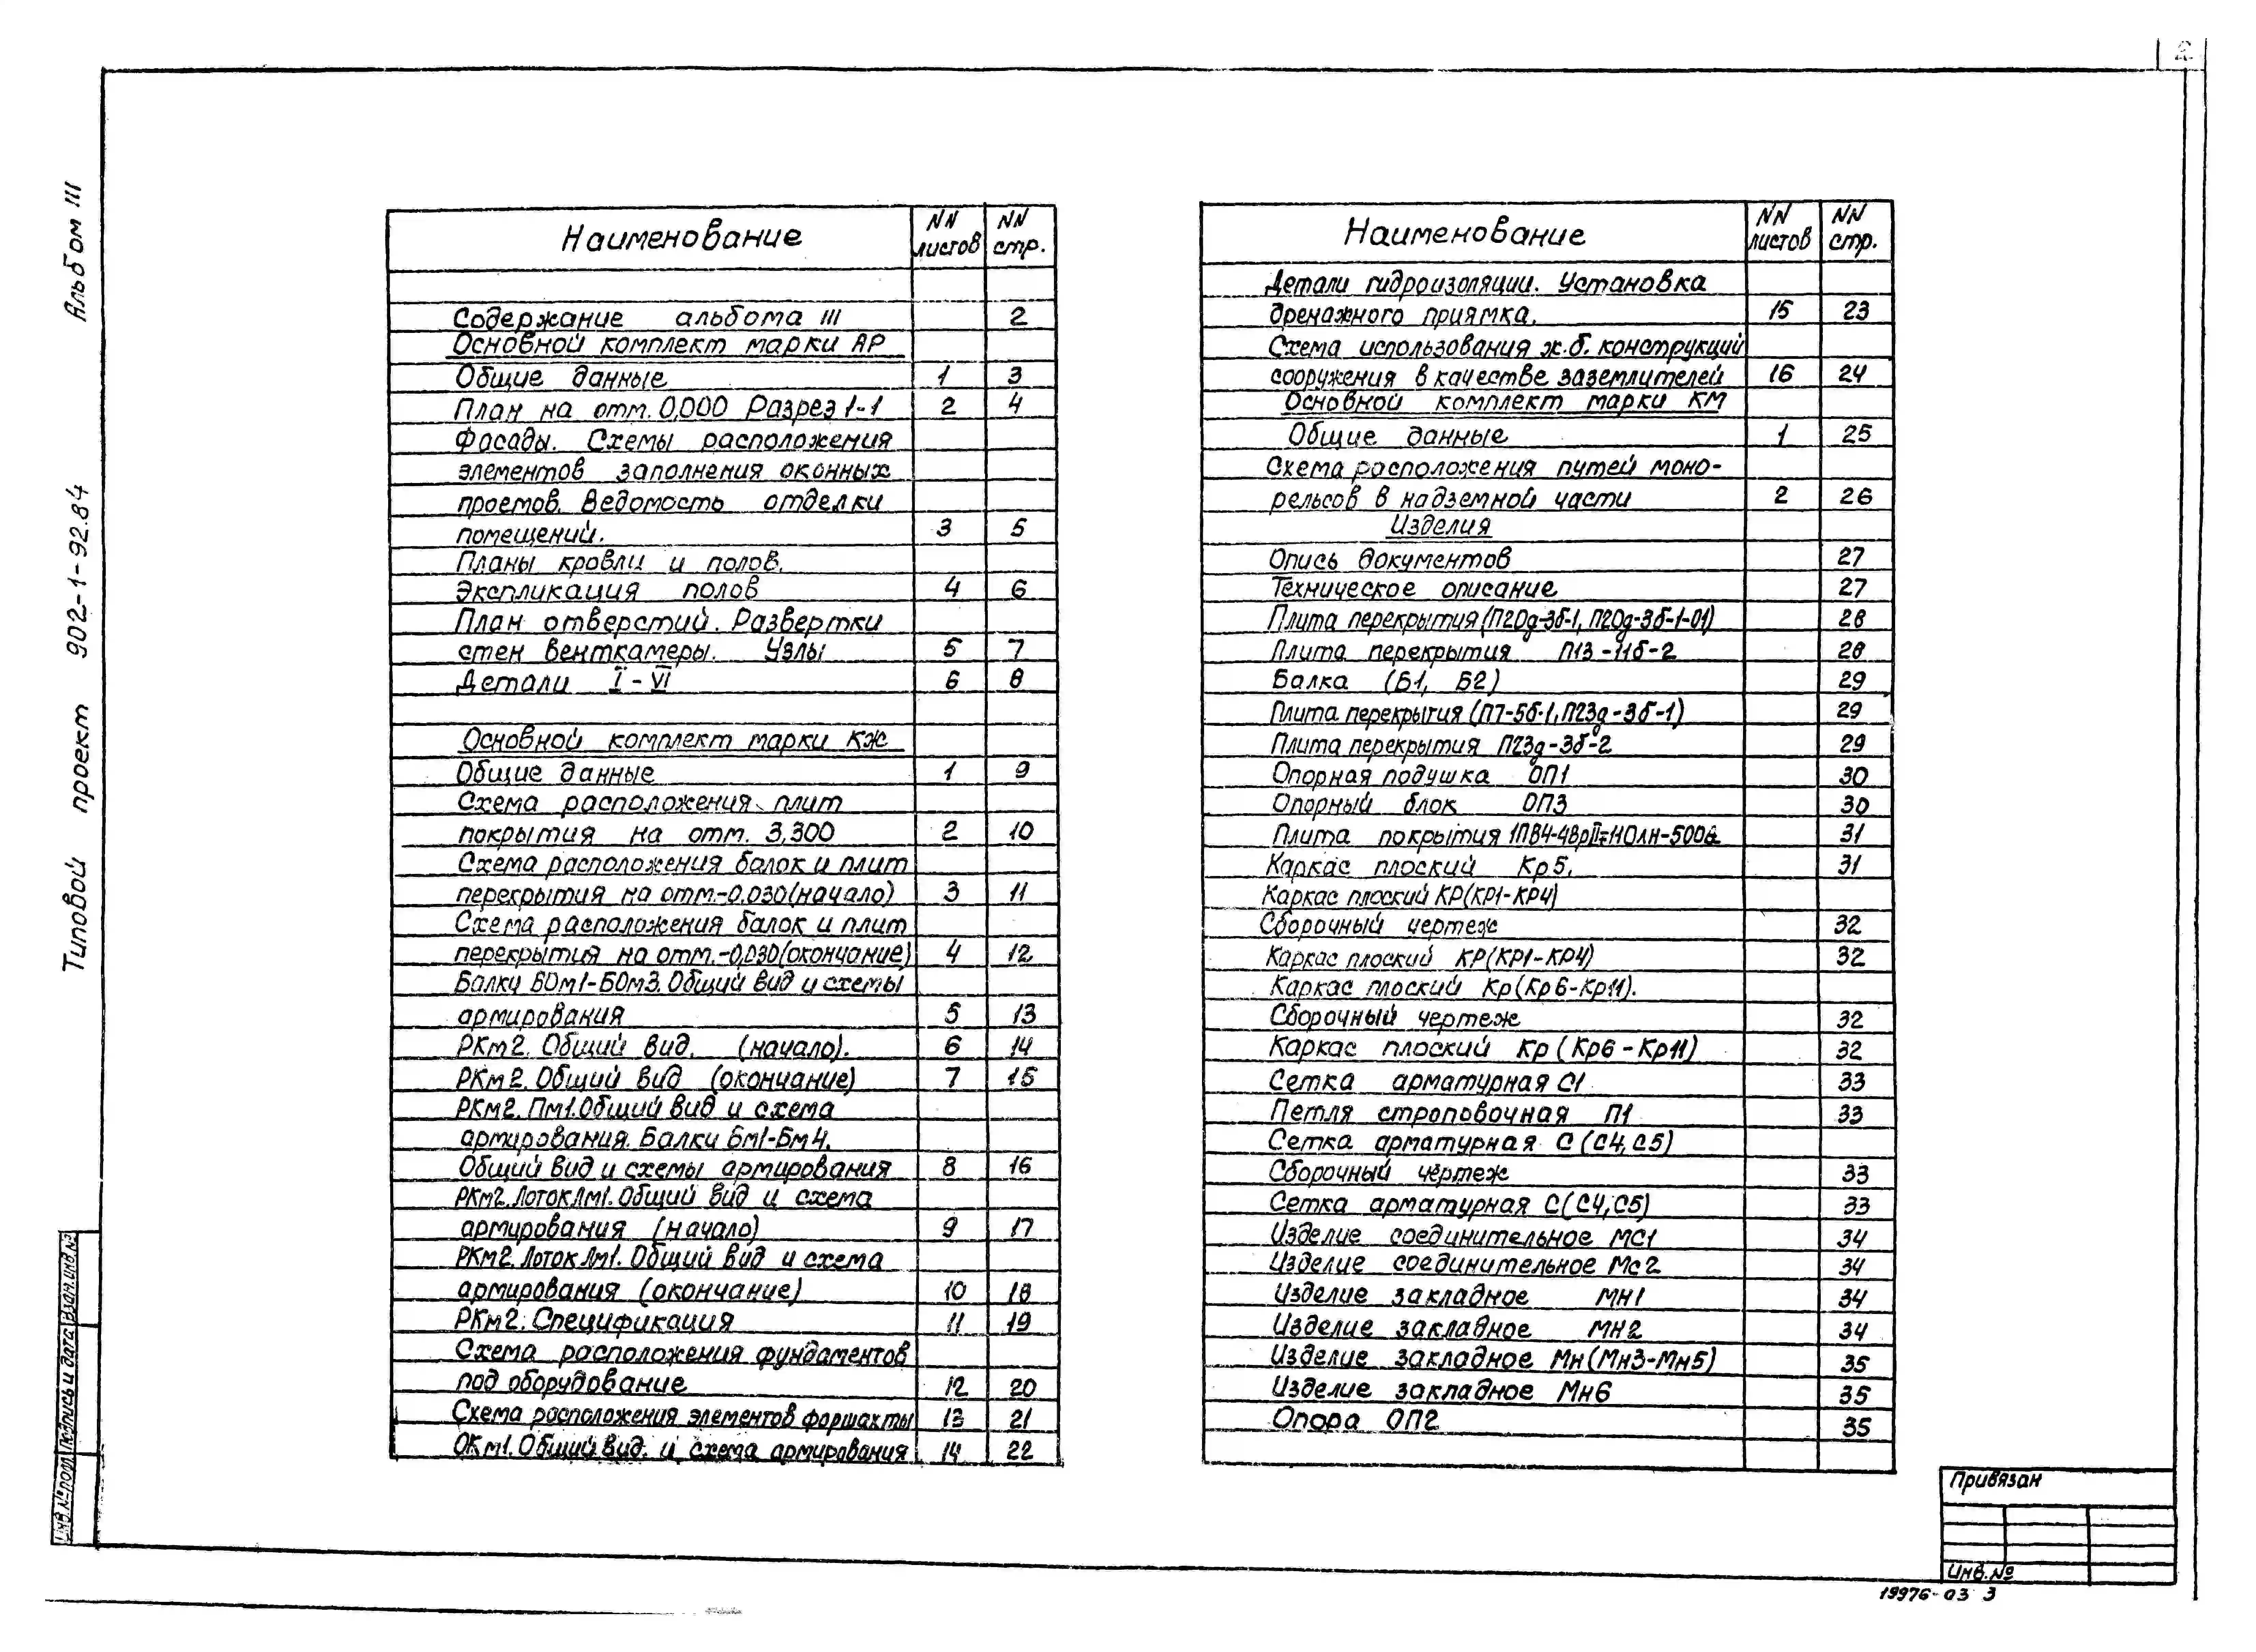 2
Альбом III
Типовой проект 902-1-92.84
Наименование NN листов NN стр.
Содержание альбома III 2
Основной комплект марки АР
Общие данные 1 3
План на отм. 0,000 Разрез 1-1 2 4
Фасады. Схемы расположения
элементов заполнения оконных
проемов. Ведомость отделки
помещений. 3 5
Планы кровли и полов.
Экспликация полов 4 6
План отверстий. Развертки
стен венткамеры. Узлы 5 7
Детали I - VI 6 8
Основной комплект марки КЖ
Общие данные 1 9
Схема расположения плит
покрытия на отм. 3,300 2 10
Схема расположения балок и плит
перекрытия на отм.-0,030 (начало) 3 11
Схема расположения балок и плит
перекрытия на отм.-0,030 (окончание) 4 12
Балки БОм1-БОм3. Общий вид и схемы
армирования 5 13
РКм2. Общий вид. (начало). 6 14
РКм2. Общий вид (окончание) 7 15
РКм2. Пм1. Общий вид и схема
армирования. Балки Бм1-Бм4.
Общий вид и схемы армирования 8 16
РКм2. Лоток Лм1. Общий вид и схема
армирования (начало) 9 17
РКм2. Лоток Лм1. Общий вид и схема
армирования (окончание) 10 18
РКм2. Спецификация 11 19
Схема расположения фундаментов
под оборудование 12 20
Схема расположения элементов форшахты 13 21
ОКм1. Общий вид. и схема армирования 14 22
Наименование NN листов NN стр.
Детали гидроизоляции. Установка
дренажного приямка. 15 23
Схема использования ж.б. конструкций
сооружения в качестве заземлителей 16 24
Основной комплект марки КМ
Общие данные 1 25
Схема расположения путей моно-
рельсов в надземной части 2 26
Изделия
Опись документов 27
Техническое описание 27
Плита перекрытия (П20д-3б-1, П20д-3б-1-01) 28
Плита перекрытия П13-11б-2 28
Балка (Б1, Б2) 29
Плита перекрытия (П7-5б-1, П23д-3б-1) 29
Плита перекрытия П23д-3б-2 29
Опорная подушка ОП1 30
Опорный блок ОП3 30
Плита покрытия 31
Каркас плоский Кр5. 31
Каркас плоский КР (КР1-КР4)
Сборочный чертеж 32
Каркас плоский КР (КР1-КР4) 32
Каркас плоский Кр (Кр6-Кр11).
Сборочный чертеж 32
Каркас плоский Кр (Кр6-Кр11) 32
Сетка арматурная С1 33
Петля строповочная П1 33
Сетка арматурная С (С4, С5)
Сборочный чертеж 33
Сетка арматурная С (С4, С5) 33
Изделие соединительное МС1 34
Изделие соединительное Мс2 34
Изделие закладное МН1 34
Изделие закладное МН2 34
Изделие закладное Мн (Мн3-Мн5) 35
Изделие закладное Мн6 35
Опора ОП2 35
Инв.№подл. Подпись и дата Взам.инв.№
Привязан
Инв.№
19976-03 3